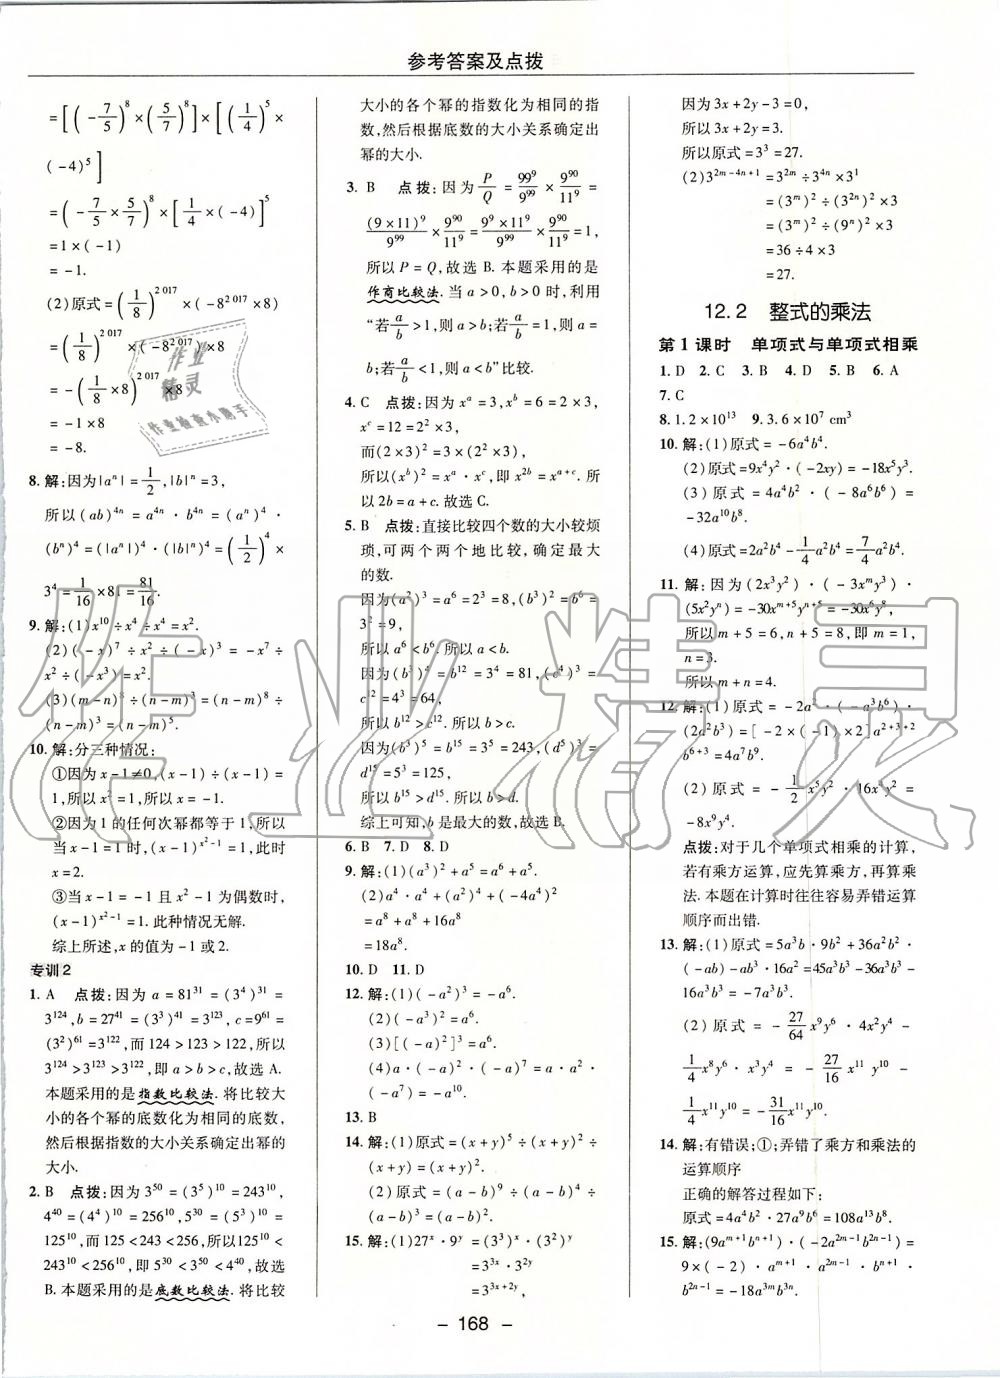 参考答案及点拨
=[(-7/5)^8×(5/7)^8]×[(1/4)^5×
(-4)^5]
=(-7/5×5/7)^8×[1/4×(-4)]^5
=1×(-1)
=-1.
(2)原式=(1/8)^2 017×(-8^2 017×8)
=(1/8)^2 017×(-8^2 017)×8
=-(1/8×8)^2 017×8
=-1×8
=-8.
8. 解:因为|a^n|=1/2,|b|^n=3,
所以(ab)^4n=a^4n·b^4n=(a^n)^4·
(b^n)^4=(|a^n|)^4·(|b|^n)^4=(1/2)^4×
3^4=1/16×81=81/16.
9. 解:(1)x^10÷x^4÷x^4=x^2.
(2)(-x)^7÷x^2÷(-x)^3=-x^7÷
x^2÷(-x^3)=x^2.
(3)(m-n)^8÷(n-m)^3=(n-m)^8÷
(n-m)^3=(n-m)^5.
10. 解:分三种情况:
①因为x-1≠0,(x-1)÷(x-1)=
1,所以x^2=1,所以x=-1.
②因为1的任何次幂都等于1,所以
当x-1=1时,(x-1)^x^2-1=1,此时
x=2.
③当x-1=-1且x^2-1为偶数时,
(x-1)^x^2-1=1.此种情况无解.
综上所述,x的值为-1或2.
专训2
1. A 点拨:因为a=81^31=(3^4)^31=
3^124,b=27^41=(3^3)^41=3^123,c=9^61=
(3^2)^61=3^122,而124>123>122,所以
3^124>3^123>3^122,即a>b>c,故选A.
本题采用的是指数比较法.将比较大
小的各个幂的底数化为相同的底数,
然后根据指数的大小关系确定出幂的
大小.
2. B 点拨:因为3^50=(3^5)^10=243^10,
4^40=(4^4)^10=256^10,5^30=(5^3)^10=
125^10,而125<243<256,所以125^10<
243^10<256^10,即5^30<3^50<4^40,故选
B.本题采用的是底数比较法.将比较
大小的各个幂的指数化为相同的指
数,然后根据底数的大小关系确定出
幂的大小.
3. B 点拨:因为P/Q=99^9/9^99×9^90/11^9=
(9×11)^9/9^99×9^90/11^9=9^9×11^9/9^99×9^90/11^9=1,
所以P=Q,故选B.本题采用的是
作商比较法.当a>0,b>0时,利用
“若a/b>1,则a>b;若a/b=1,则a=
b;若a/b<1,则a<b”比较.
4. C 点拨:因为x^a=3,x^b=6=2×3,
x^c=12=2^2×3,
而(2×3)^2=3×(2^2×3),
所以(x^b)^2=x^a·x^c,即x^2b=x^a+c.所
以2b=a+c.故选C.
5. B 点拨:直接比较四个数的大小较烦
琐,可两个两个地比较,确定最大
的数.
因为(a^2)^3=a^6=2^3=8,(b^3)^2=b^6=
3^2=9,
所以a^6<b^6.所以a<b.
因为(b^3)^4=b^12=3^4=81,(c^4)^3=
c^12=4^3=64,
所以b^12>c^12.所以b>c.
因为(b^3)^5=b^15=3^5=243,(d^5)^3=
d^15=5^3=125,
所以b^15>d^15.所以b>d.
综上可知,b是最大的数,故选B.
6. B 7. D 8. D
9. 解:(1)(a^3)^2+a^5=a^6+a^5.
(2)a^4·a^4+(a^2)^4+(-4a^4)^2
=a^8+a^8+16a^8
=18a^8.
10. D 11. D
12. 解:(1)(-a^2)^3=-a^6.
(2)(-a^3)^2=a^6.
(3)[(-a)^2]^3=a^6.
(4)a·(-a)^2·(-a)^7=a·a^2·
(-a^7)=-a^10.
13. B
14. 解:(1)原式=(x+y)^5÷(x+y)^2÷
(x+y)=(x+y)^2.
(2)原式=(a-b)^9÷(a-b)^4÷
(a-b)^3=(a-b)^2.
15. 解:(1)27^x·9^y=(3^3)^x·(3^2)^y
=3^3x·3^2y
=3^3x+2y,
因为3x+2y-3=0,
所以3x+2y=3.
所以原式=3^3=27.
(2)3^2m-4n+1=3^2m÷3^4n×3^1
=(3^m)^2÷(3^2n)^2×3
=(3^m)^2÷(9^n)^2×3
=36÷4×3
=27.
12.2 整式的乘法
第1课时 单项式与单项式相乘
1. D 2. C 3. B 4. D 5. B 6. A
7. C
8. 1.2×10^13 9. 3.6×10^7 cm^3
10. 解:(1)原式=-6a^4b^4.
(2)原式=9x^4y^2·(-2xy)=-18x^5y^3.
(3)原式=4a^4b^2·(-8a^6b^6)=
-32a^10b^8.
(4)原式=2a^2b^4-1/4a^2b^4=7/4a^2b^4.
11. 解:因为(2x^3y^2)·(-3x^my^3)·
(5x^2y^n)=-30x^m+5y^n+5=-30x^6y^8,
所以m+5=6,n+5=8,即m=1,
n=3.
所以m+n=4.
12. 解:(1)原式=-2a^2·(-a^3b^6)·
(2a^2b^3)=[-2×(-1)×2]a^2+3+2
b^6+3=4a^7b^9.
(2)原式=-1/2x^5y^2·16x^4y^2=
-8x^9y^4.
点拨:对于几个单项式相乘的计算,
若有乘方运算,应先算乘方,再算乘
法.本题在计算时往往容易弄错运算
顺序而出错.
13. 解:(1)原式=5a^3b·9b^2+36a^2b^2·
(-ab)-ab^3·16a^2=45a^3b^3-36a^3b^3-
16a^3b^3=-7a^3b^3.
(2)原式=-27/64x^9y^6·4x^2y^4-
1/4x^8y^6·x^3y^4=-27/16x^11y^10-
1/4x^11y^10=-31/16x^11y^10.
14. 解:有错误;①;弄错了乘方和乘法的
运算顺序
正确的解答过程如下:
原式=4a^4b^2·27a^9b^6=108a^13b^8.
15. 解:(9a^m+1b^n+1)·(-2a^2m-1b^2n-1)=
9×(-2)·a^m+1·a^2m-1·b^n+1·
b^2n-1=-18a^3mb^3n.
- 168 -
作业精灵
作业
精灵
作业检查小助手